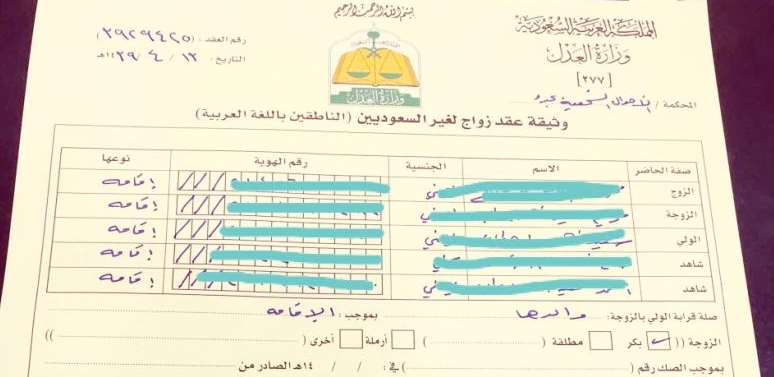 بسم الله الرحمن الرحيم
المملكة العربية السعودية
وزارة العدل
[٢٧٧]
المحكمة / الأحوال الشخصية بجدة
رقم العقد : (٣٩٢٩٤٢٥)
التاريخ : ١٣ / ٤ / ١٤٣٩هـ
وزارة العدل
وثيقة عقد زواج لغير السعوديين (الناطقين باللغة العربية)
صفة الحاضر الاسم الجنسية رقم الهوية نوعها
الزوج إقامه
الزوجة إقامه
الولي إقامه
شاهد إقامه
شاهد إقامه
صلة قرابة الولي بالزوجة: والدها بموجب: الإقامه
الزوجة (( بكر مطلقة ( ) أرملة أخرى ( ))
بموجب الصك رقم ( ) في: / / ١٤هـ الصادر من